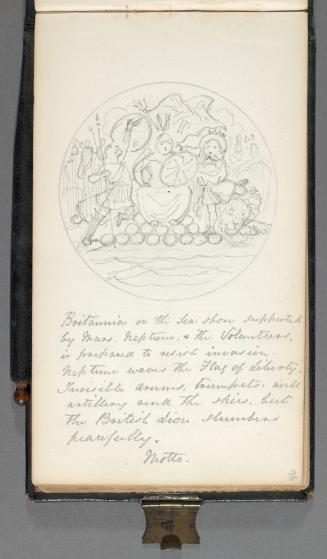 Britannia on the Sea shore supported
by Mars, Neptune, & the Volunteers,
is prepared to resist invasion.
Neptune waves the Flag of Liberty.
Invisible drums, trumpets and
artillery rend the skies, but
the British Lion slumbers
peacefully.
Motto.